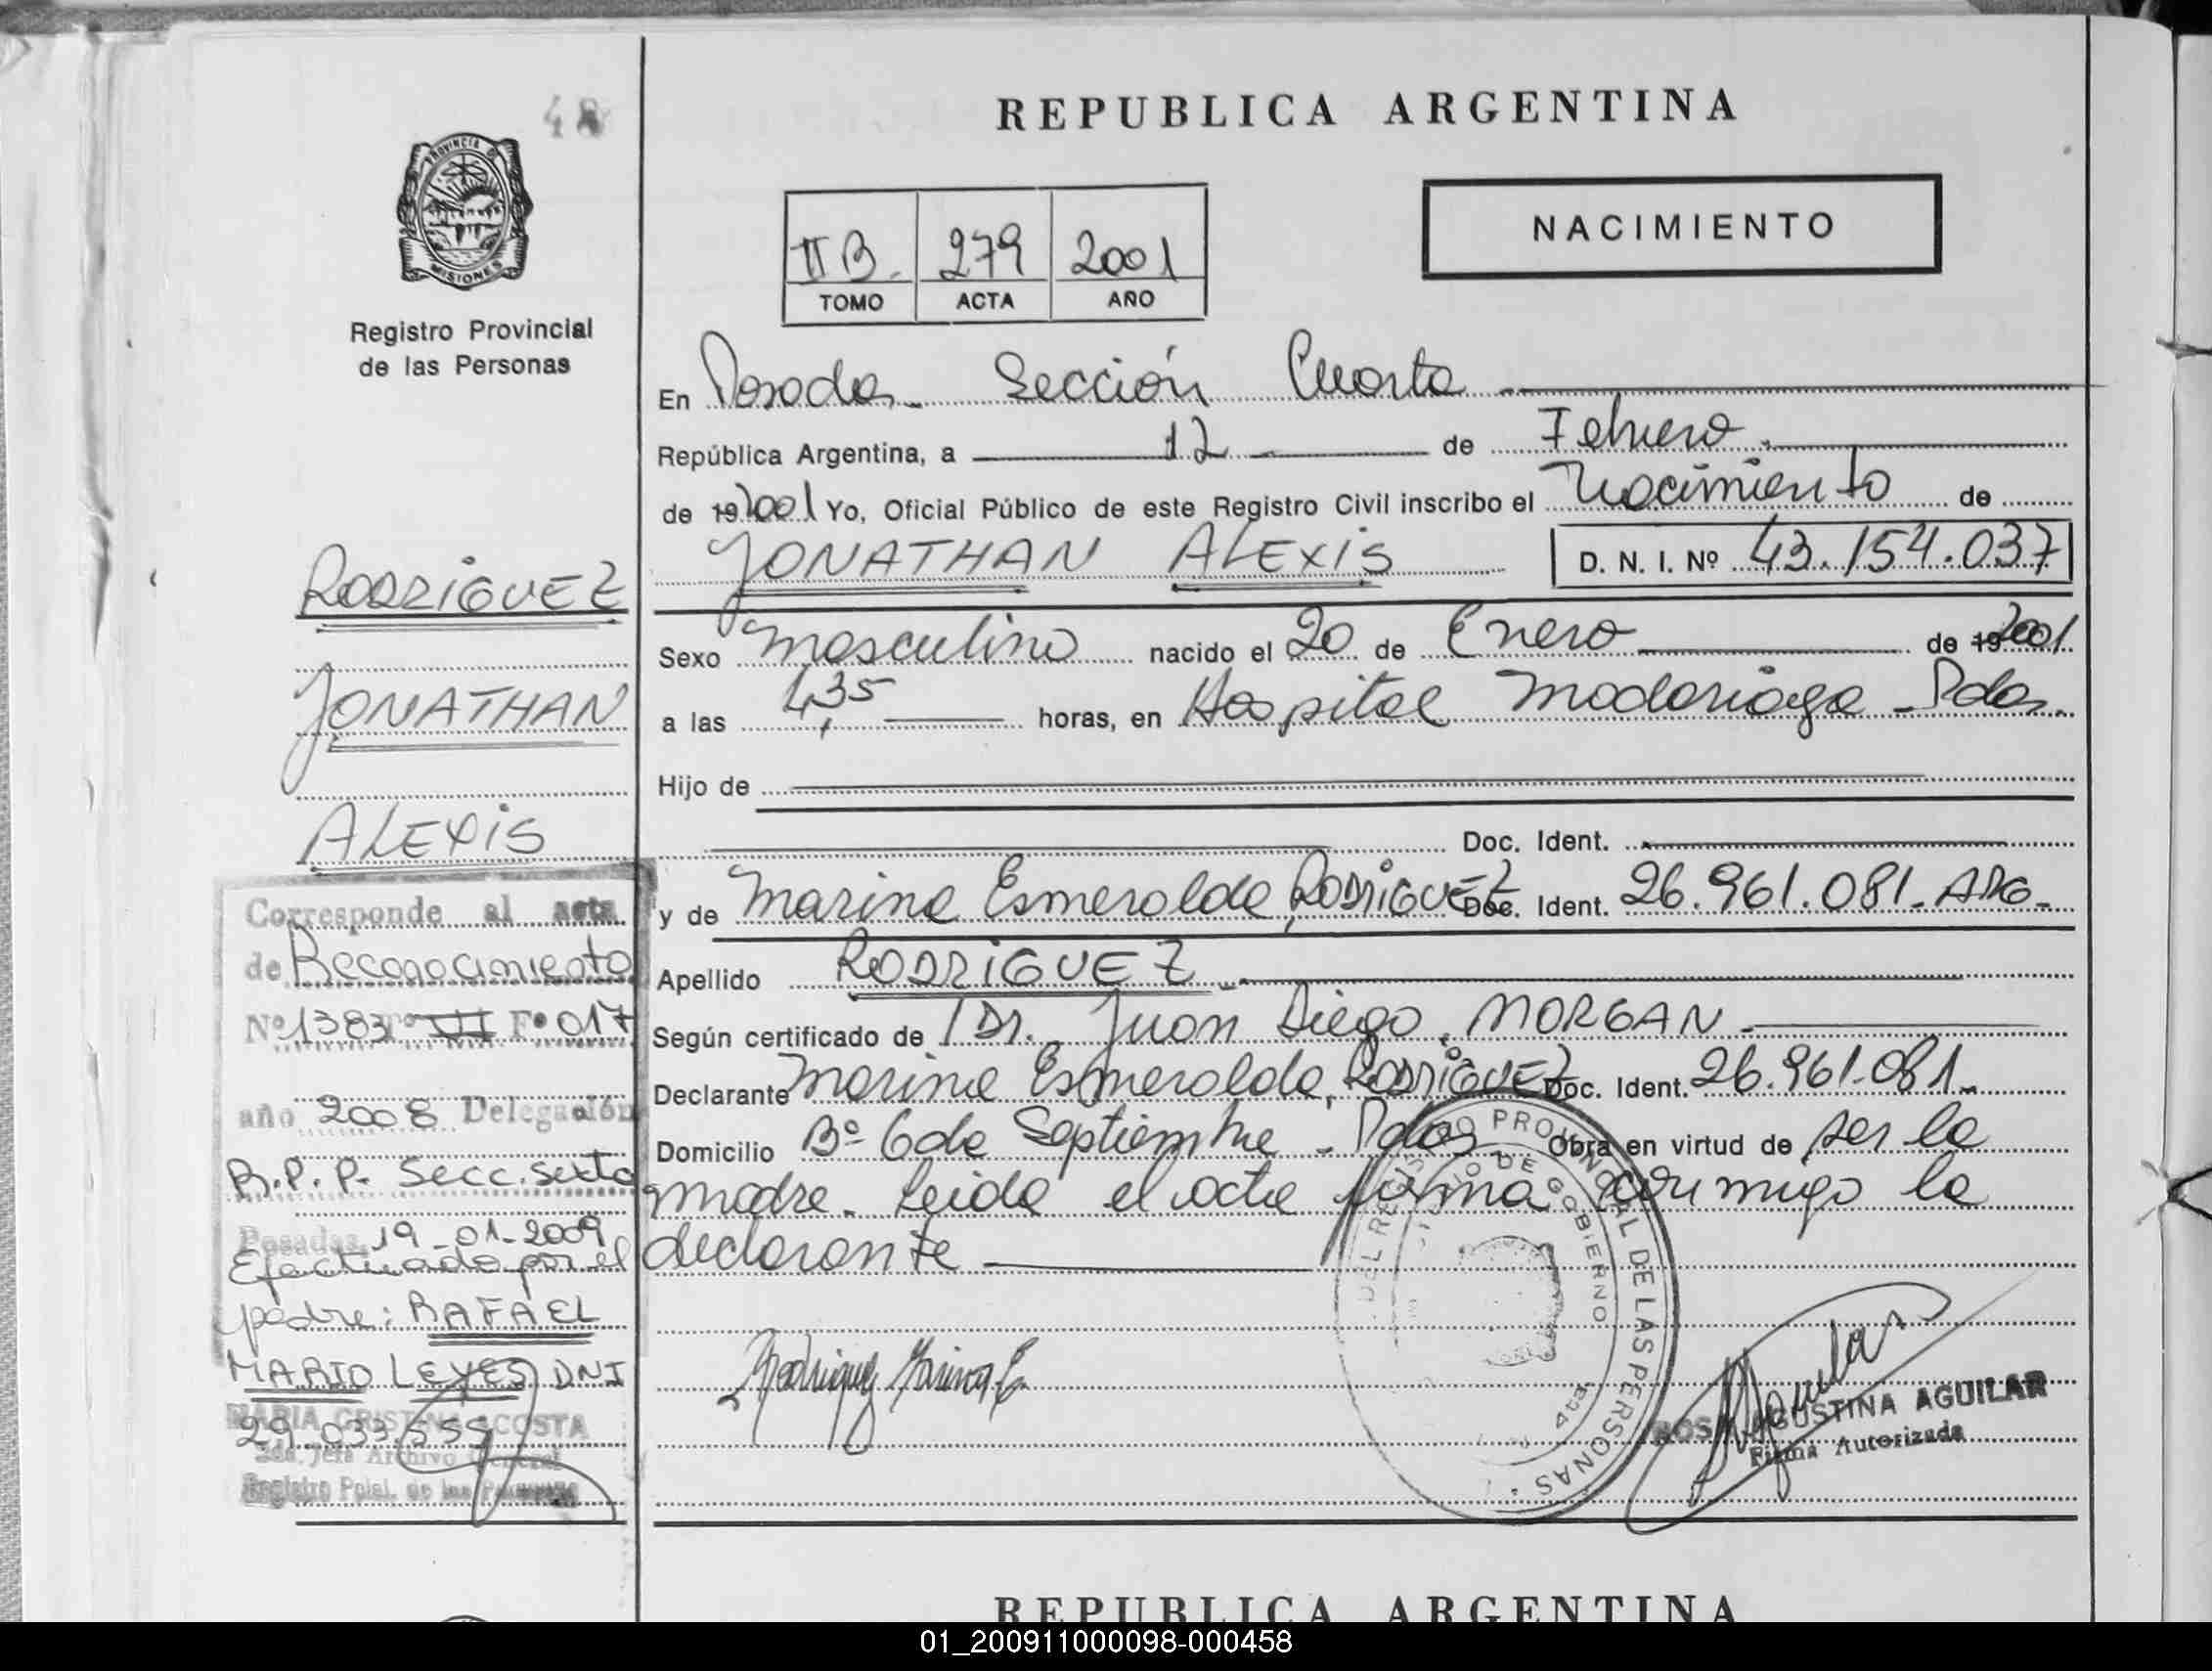 48
REPUBLICA ARGENTINA
PROVINCIA DE
MISIONES
Registro Provincial
de las Personas
II B. 279 2001
TOMO ACTA AÑO
NACIMIENTO
En Posadas - Sección Cuarta -
República Argentina, a 12 de Febrero.
de 192001 Yo, Oficial Público de este Registro Civil inscribo el Nacimiento de
JONATHAN ALEXIS D. N. I. Nº 43.154.037
Sexo Masculino nacido el 20 de Enero de 19 2001.
a las 4,35 horas, en Hospital Madariaga - Pdas.
Hijo de
Doc. Ident.
y de Marina Esmeralda RODRIGUEZ Doc. Ident. 26.961.081 - ARG -
Apellido RODRIGUEZ -
Según certificado de Dr. Juan Diego MORGAN -
Declarante Marina Esmeralda, RODRIGUEZ Doc. Ident. 26.961.081 -
Domicilio Bº 6 de Septiembre - Pdas Obra en virtud de ser la
madre - Leida el acta firma conmigo la
declarante
Rodriguez Marina E.
DEL REGISTRO PROVINCIAL DE LAS PERSONAS
DE GOBIERNO
Aguilar
ROSA AGUSTINA AGUILAR
Firma Autorizada
RODRIGUEZ
JONATHAN
ALEXIS
Corresponde al acta
de Reconocimiento
Nº 1383 Tº III Fº 017
año 2008 Delegación
R. P. P. Secc. sexta
Posadas, 19-01-2009
Efectuado por el
padre: RAFAEL
MARIO LEYES DNI
29.033.555
MARIA CRISTINA ACOSTA
2da. Jefa Archivo General
Registro Pcial. de las Personas
REPUBLICA ARGENTINA
01_200911000098-000458